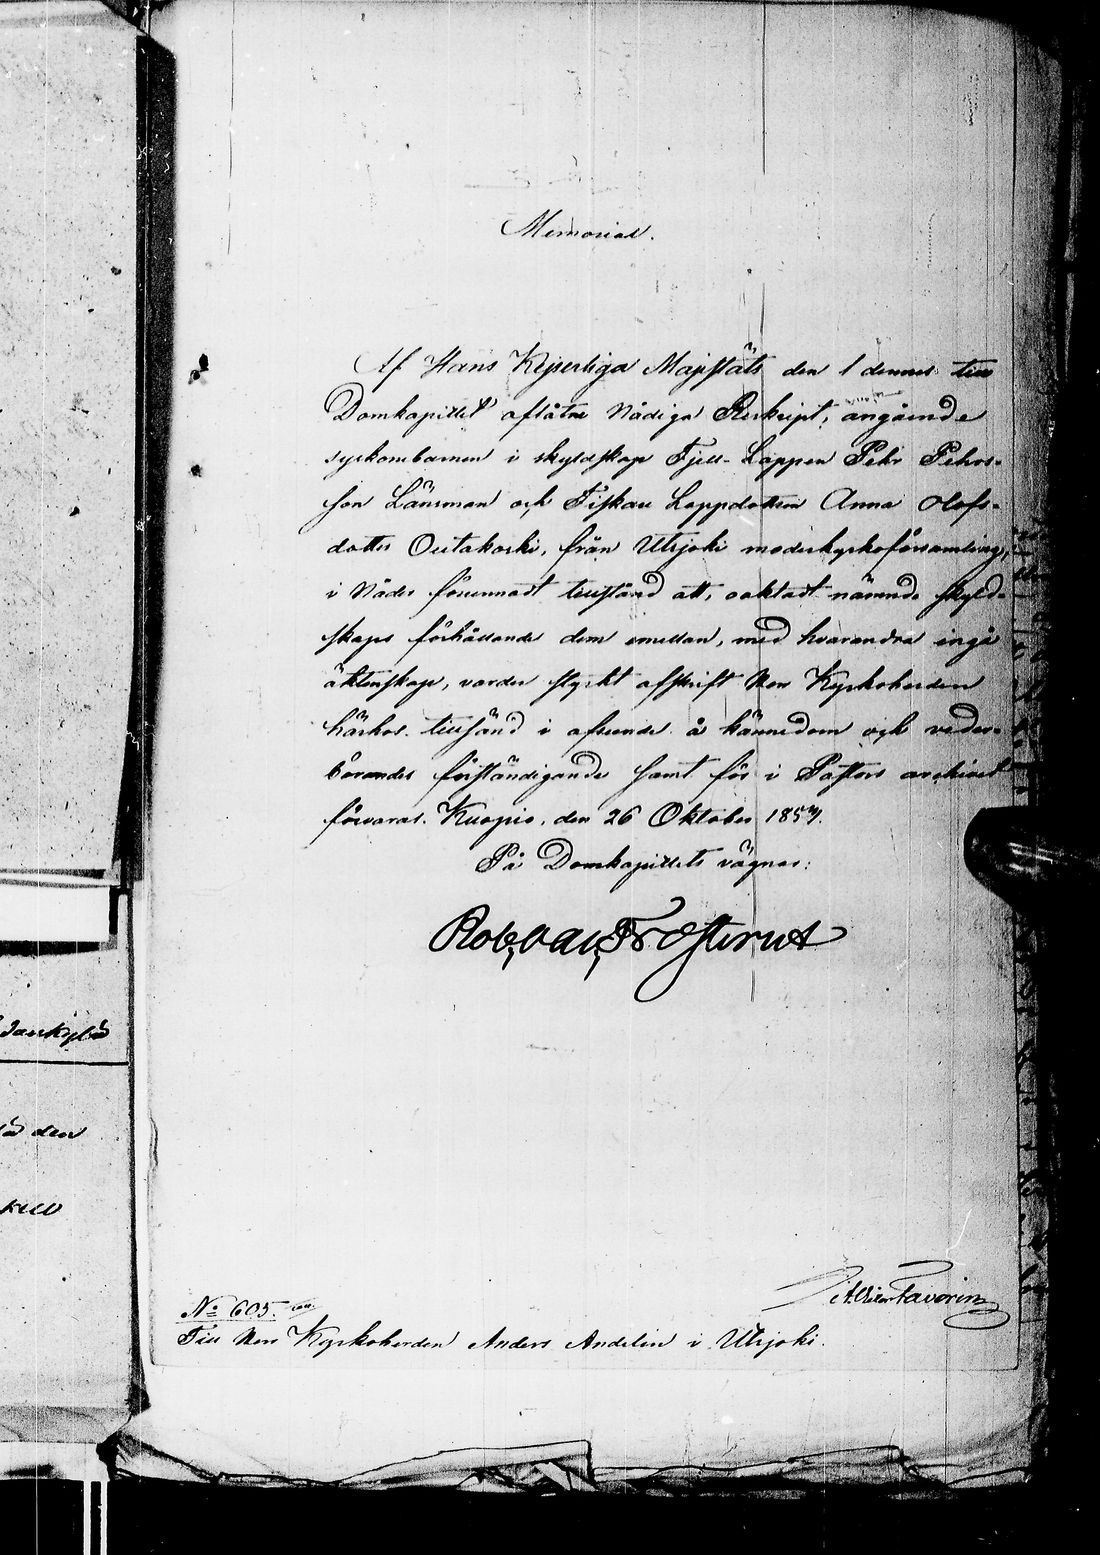 Memorial.
Af Hans Kejserliga Majestäts den 1 dennes till
Domkapitlet aflåtne Nådiga Reskript, angående
syskonebarnen i skyldskap Fjell-Lappen Pehr Pehrs-
son Länsman och Fiskare Lappdottren Anna Olofs-
dotter Outakoski, från Utsjoki moderkyrkoförsamling,
i Nåder förunnadt tillstånd att, oaktadt nämnde skyld-
skaps förhållande dem emellan, med hvarandra ingå
äktenskap, varder styrkt afskrift Herr Kyrkoherden
härhos tillsänd i afseende å kännedom och veder-
börandes förständigande samt för i Pastors archivet
förvaras. Kuopio, den 26 Oktober 1857.
På Domkapitlets vägnar:
Rob. Val. Frosterus
A. Favorin
No 605.
Till Herr Kyrkoherden Anders Andelin i Utsjoki.
dankylä
den